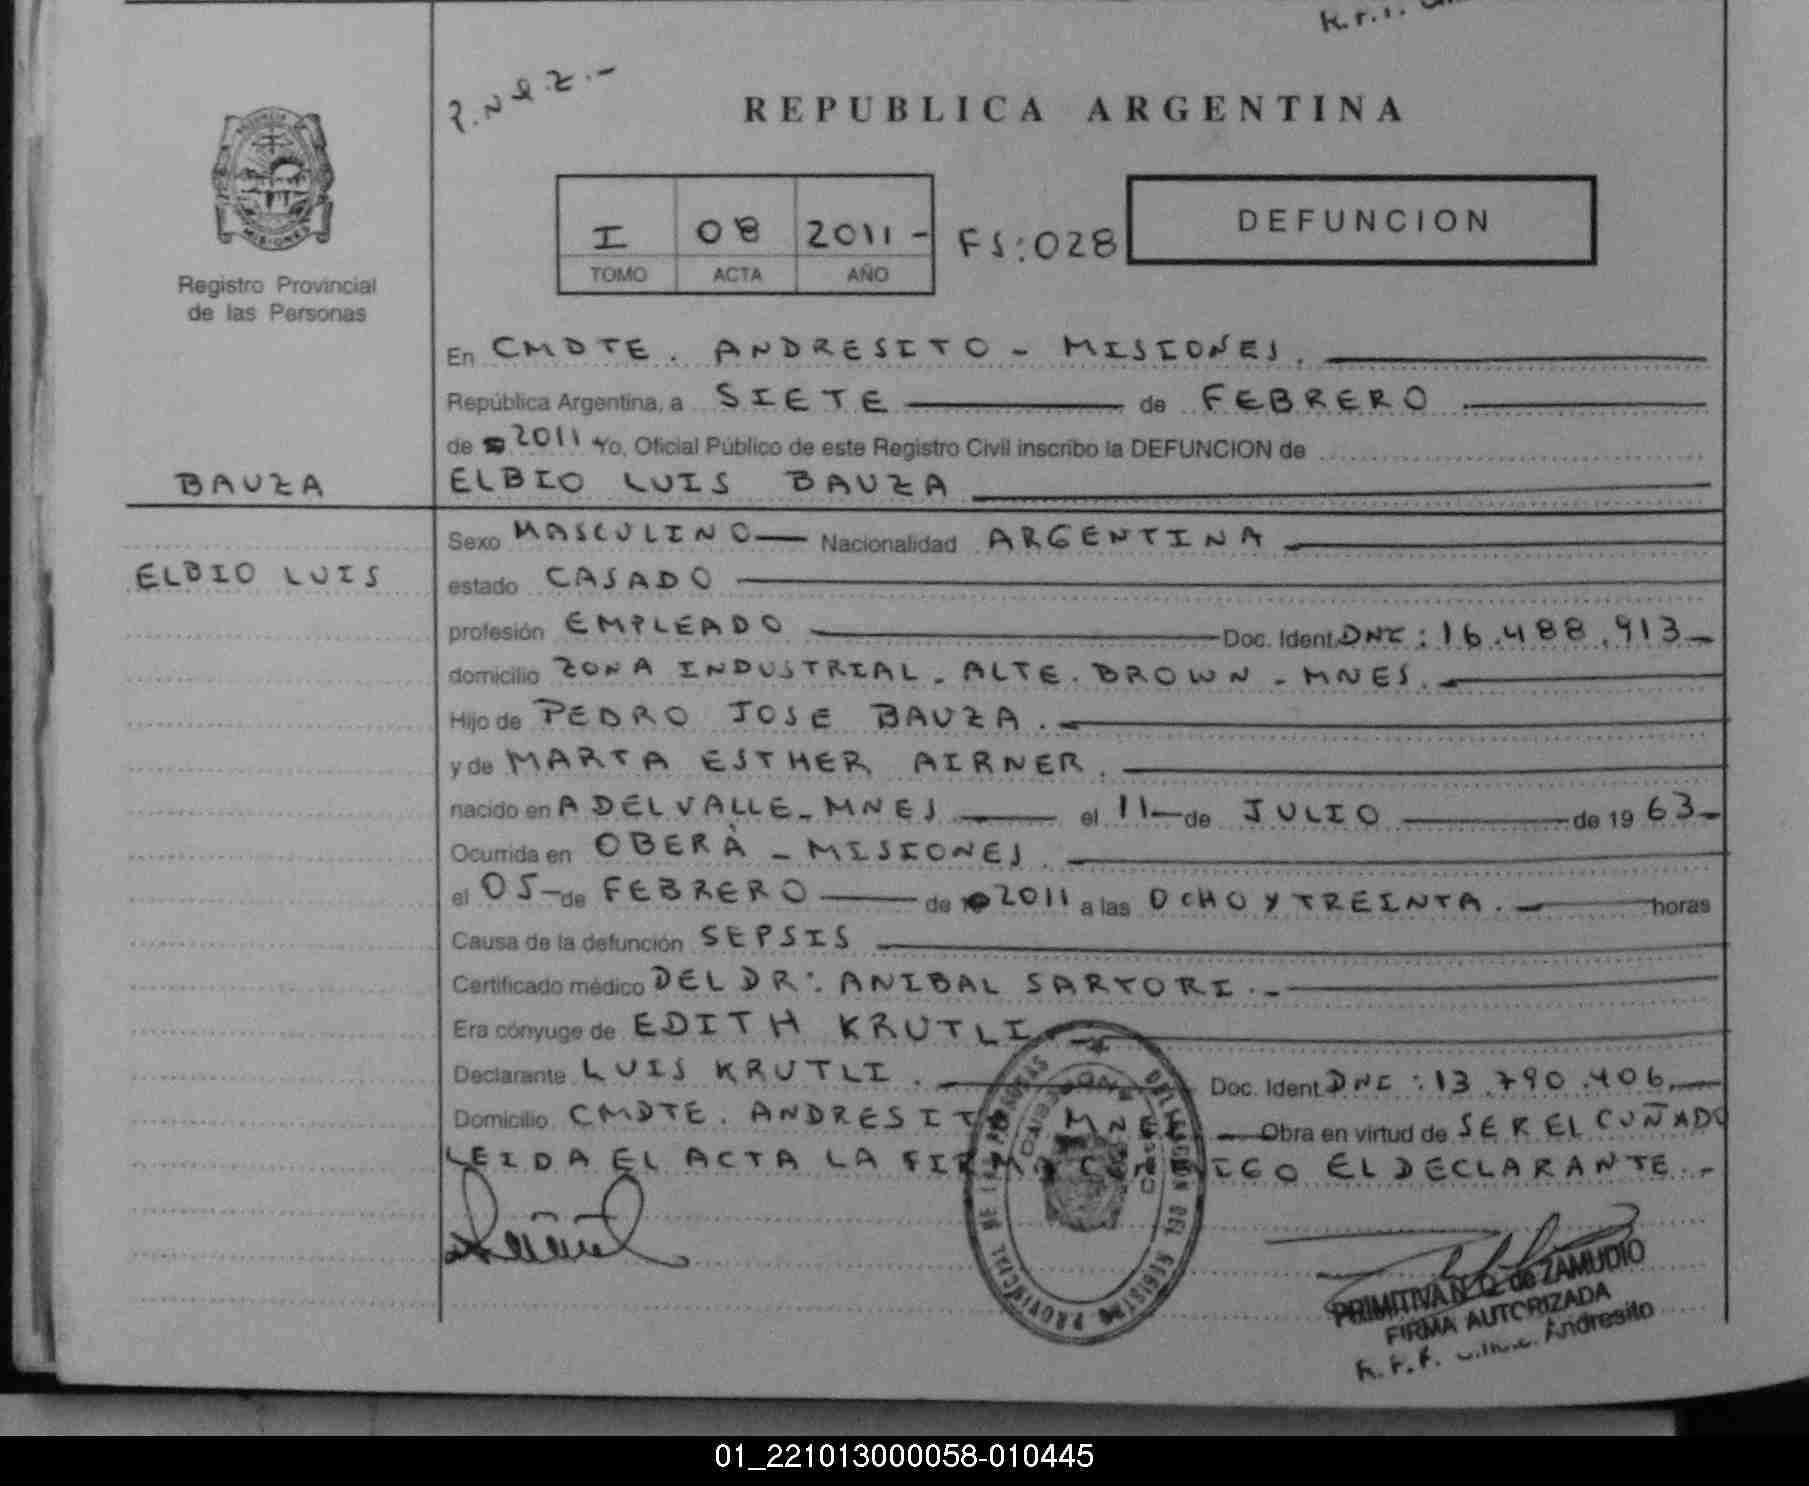 P.N.Q.Z.-
REPUBLICA ARGENTINA
PROVINCIA
MISIONES
Registro Provincial
de las Personas
I 08 2011- FS:028
TOMO ACTA AÑO
DEFUNCION
En CMDTE. ANDRESITO - MISIONES.
República Argentina, a SIETE de FEBRERO
de 2011 Yo, Oficial Público de este Registro Civil inscribo la DEFUNCION de
BAUZA
ELBIO LUIS BAUZA
Sexo MASCULINO Nacionalidad ARGENTINA
ELBIO LUIS
estado CASADO
profesión EMPLEADO Doc. Ident. DNI: 16.488.913-
domicilio ZONA INDUSTRIAL - ALTE. BROWN - MNES.
Hijo de PEDRO JOSE BAUZA.
y de MARTA ESTHER AIRNER.
nacido en A DEL VALLE - MNES el 11 de JULIO de 1963-
Ocurrida en OBERÀ - MISIONES.
el 05 de FEBRERO de 2011 a las OCHO Y TREINTA. horas
Causa de la defunción SEPSIS
Certificado médico DEL DR: ANIBAL SARTORI.-
Era cónyuge de EDITH KRUTLI
Declarante LUIS KRUTLI. Doc. Ident. DNI: 13.790.406.
Domicilio CMDTE. ANDRESITO MNES Obra en virtud de SER EL CUÑADO
LEIDA EL ACTA LA FIRMA CONMIGO EL DECLARANTE.-
DELEGACION DEL REGISTRO PROVINCIAL DE LAS PERSONAS
PRIMITIVA N. Q. de ZAMUDIO
FIRMA AUTORIZADA
R.P.P. Cmte. Andresito
01_221013000058-010445